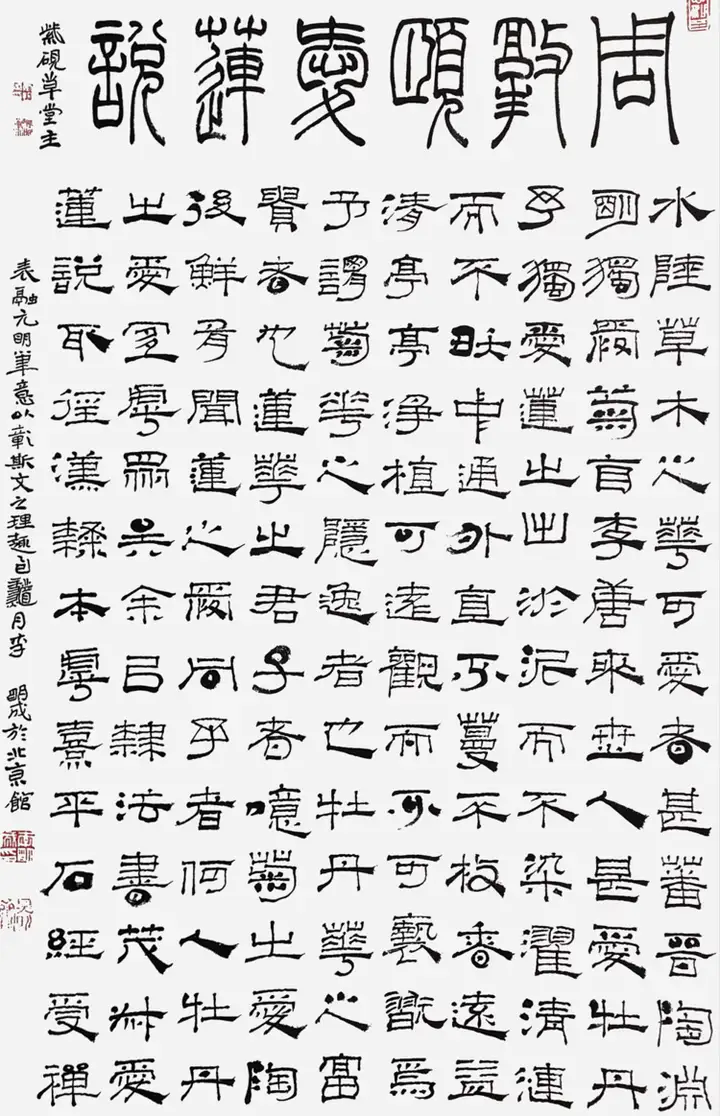 周敦頤愛蓮說
紫硯草堂主
水陸草木之華可愛者甚蕃晉陶淵
明獨愛菊自李唐來世人甚愛牡丹
予獨愛蓮之出淤泥而不染濯清漣
而不妖中通外直不蔓不枝香遠益
清亭亭淨植可遠觀而不可褻翫焉
予謂菊華之隱逸者也牡丹華之富
貴者也蓮華之君子者噫菊之愛陶
後鮮有聞蓮之愛同乎者何人牡丹
之愛宜乎眾矣余以隸法書茂叔愛
蓮說取徑漢隸本乎熹平石經受禪
表融元明筆意以彰斯文之理趣自月李明成於北京館